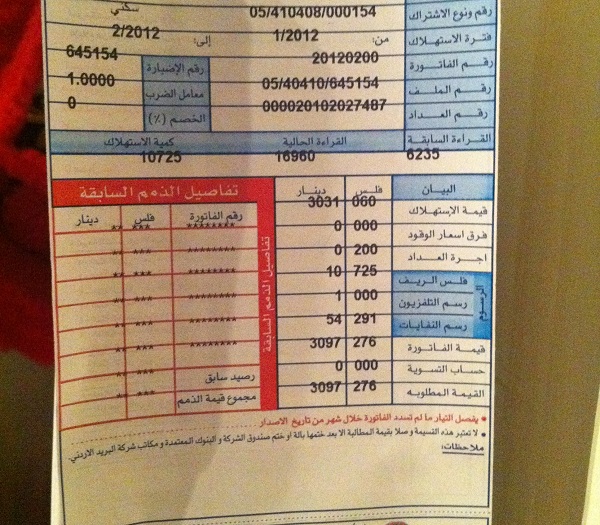 رقم ونوع الاشتراك 05/410408/000154 سكني
فترة الاستهلاك من: 1/2012 إلى: 2/2012
رقم الفاتورة 20120200 رقم الإضبارة 645154
رقم الملف 05/40410/645154 معامل الضرب 1.0000
رقم العداد 000020102027487 الخصم (٪) 0
القراءة السابقة القراءة الحالية كمية الاستهلاك
6235 16960 10725
البيان فلس دينار
قيمة الإستهلاك 060 3031
فرق اسعار الوقود 000 0
اجرة العداد 200 0
الرسوم
فلس الريف 725 10
رسم التلفزيون 000 1
رسم النفايات 291 54
قيمة الفاتورة 276 3097
حساب التسوية 000 0
القيمة المطلوبه 276 3097
تفاصيل الذمم السابقة
تفاصيل الذمم السابقة
رقم الفاتورة فلس دينار
******** *** **
******** *** **
******** *** **
******** *** **
******** *** **
******** *** **
رصيد سابق *** **
مجموع قيمة الذمم *** **
• يفصل التيار ما لم تسدد الفاتورة خلال شهر من تاريخ الاصدار
• لا تعتبر هذه القسيمة وصلا بقيمة المطالبة الا بعد ختمها بآلة او ختم صندوق الشركة و البنوك المعتمدة و مكاتب شركة البريد الاردني.
ملاحظات: